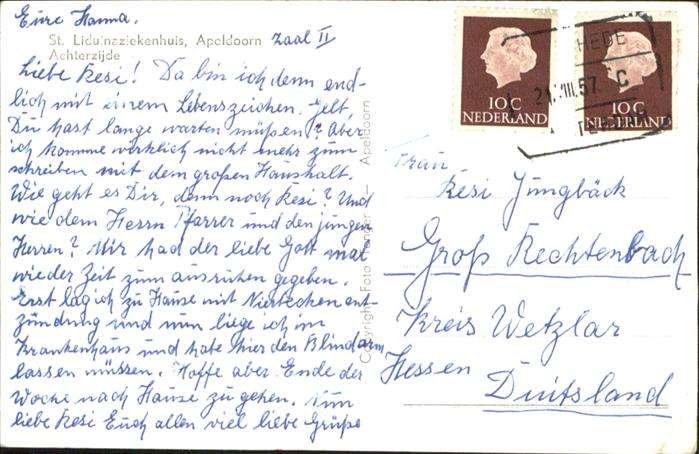 Eure Hanna.
St. Liduinaziekenhuis, Apeldoorn Zaal II
Achterzijde
Liebe Resi! Da bin ich denn end-
lich mit einem Lebenszeichen. Gelt,
Du hast lange warten müßen? Aber
ich komme wirklich nicht mehr zum
schreiben mit dem großen Haushalt.
Wie geht es Dir, denn noch Resi? Und
wie dem Herrn Pfarrer und den jungen
Herren? Mir had der liebe Gott mal
wieder Zeit zum ausruhen gegeben.
Erst lag ich zu Hause mit Nierbecken ent-
zündung und nun liege ich im
Krankenhaus und habe hier den Blindarm
lassen müssen. Hoffe aber Ende der
Woche nach Hause zu gehen. Nun
liebe Resi Euch allen viel liebe Grüße
Copyright Foto Apeldoorn
10 C
NEDERLAND
10 C
NEDERLAND
HEDE
57 C
Frau
Resi Jungbäck
Groß Rechtenbach
Kreis Wetzlar
Hessen
Duitsland